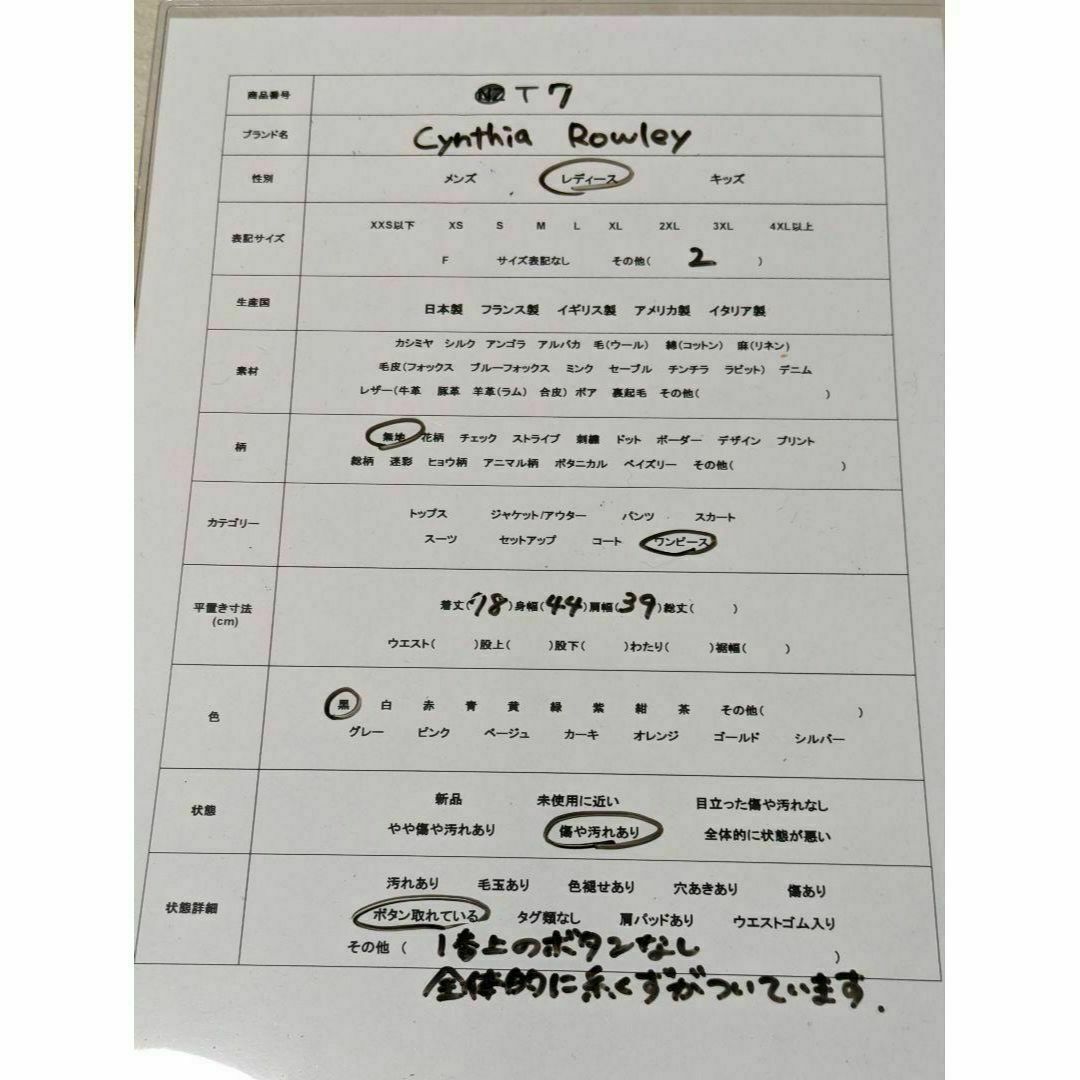 商品番号 T7
ブランド名 Cynthia Rowley
性別 メンズ レディース キッズ
表記サイズ
XXS以下 XS S M L XL 2XL 3XL 4XL以上
F サイズ表記なし その他( 2 )
生産国 日本製 フランス製 イギリス製 アメリカ製 イタリア製
素材
カシミヤ シルク アンゴラ アルパカ 毛(ウール) 綿(コットン) 麻(リネン)
毛皮(フォックス ブルーフォックス ミンク セーブル チンチラ ラビット) デニム
レザー(牛革 豚革 羊革(ラム) 合皮) ボア 裏起毛 その他( )
柄
無地 花柄 チェック ストライプ 刺繍 ドット ボーダー デザイン プリント
総柄 迷彩 ヒョウ柄 アニマル柄 ボタニカル ペイズリー その他( )
カテゴリー
トップス ジャケット/アウター パンツ スカート
スーツ セットアップ コート ワンピース
平置き寸法
(cm)
着丈( 18)身幅(44)肩幅(39)総丈( )
ウエスト( )股上( )股下( )わたり( )裾幅( )
色
黒 白 赤 青 黄 緑 紫 紺 茶 その他( )
グレー ピンク ベージュ カーキ オレンジ ゴールド シルバー
状態
新品 未使用に近い 目立った傷や汚れなし
やや傷や汚れあり 傷や汚れあり 全体的に状態が悪い
状態詳細
汚れあり 毛玉あり 色褪せあり 穴あきあり 傷あり
ボタン取れている タグ類なし 肩パッドあり ウエストゴム入り
その他 ( 1番上のボタンなし )
全体的に糸くずがついています.